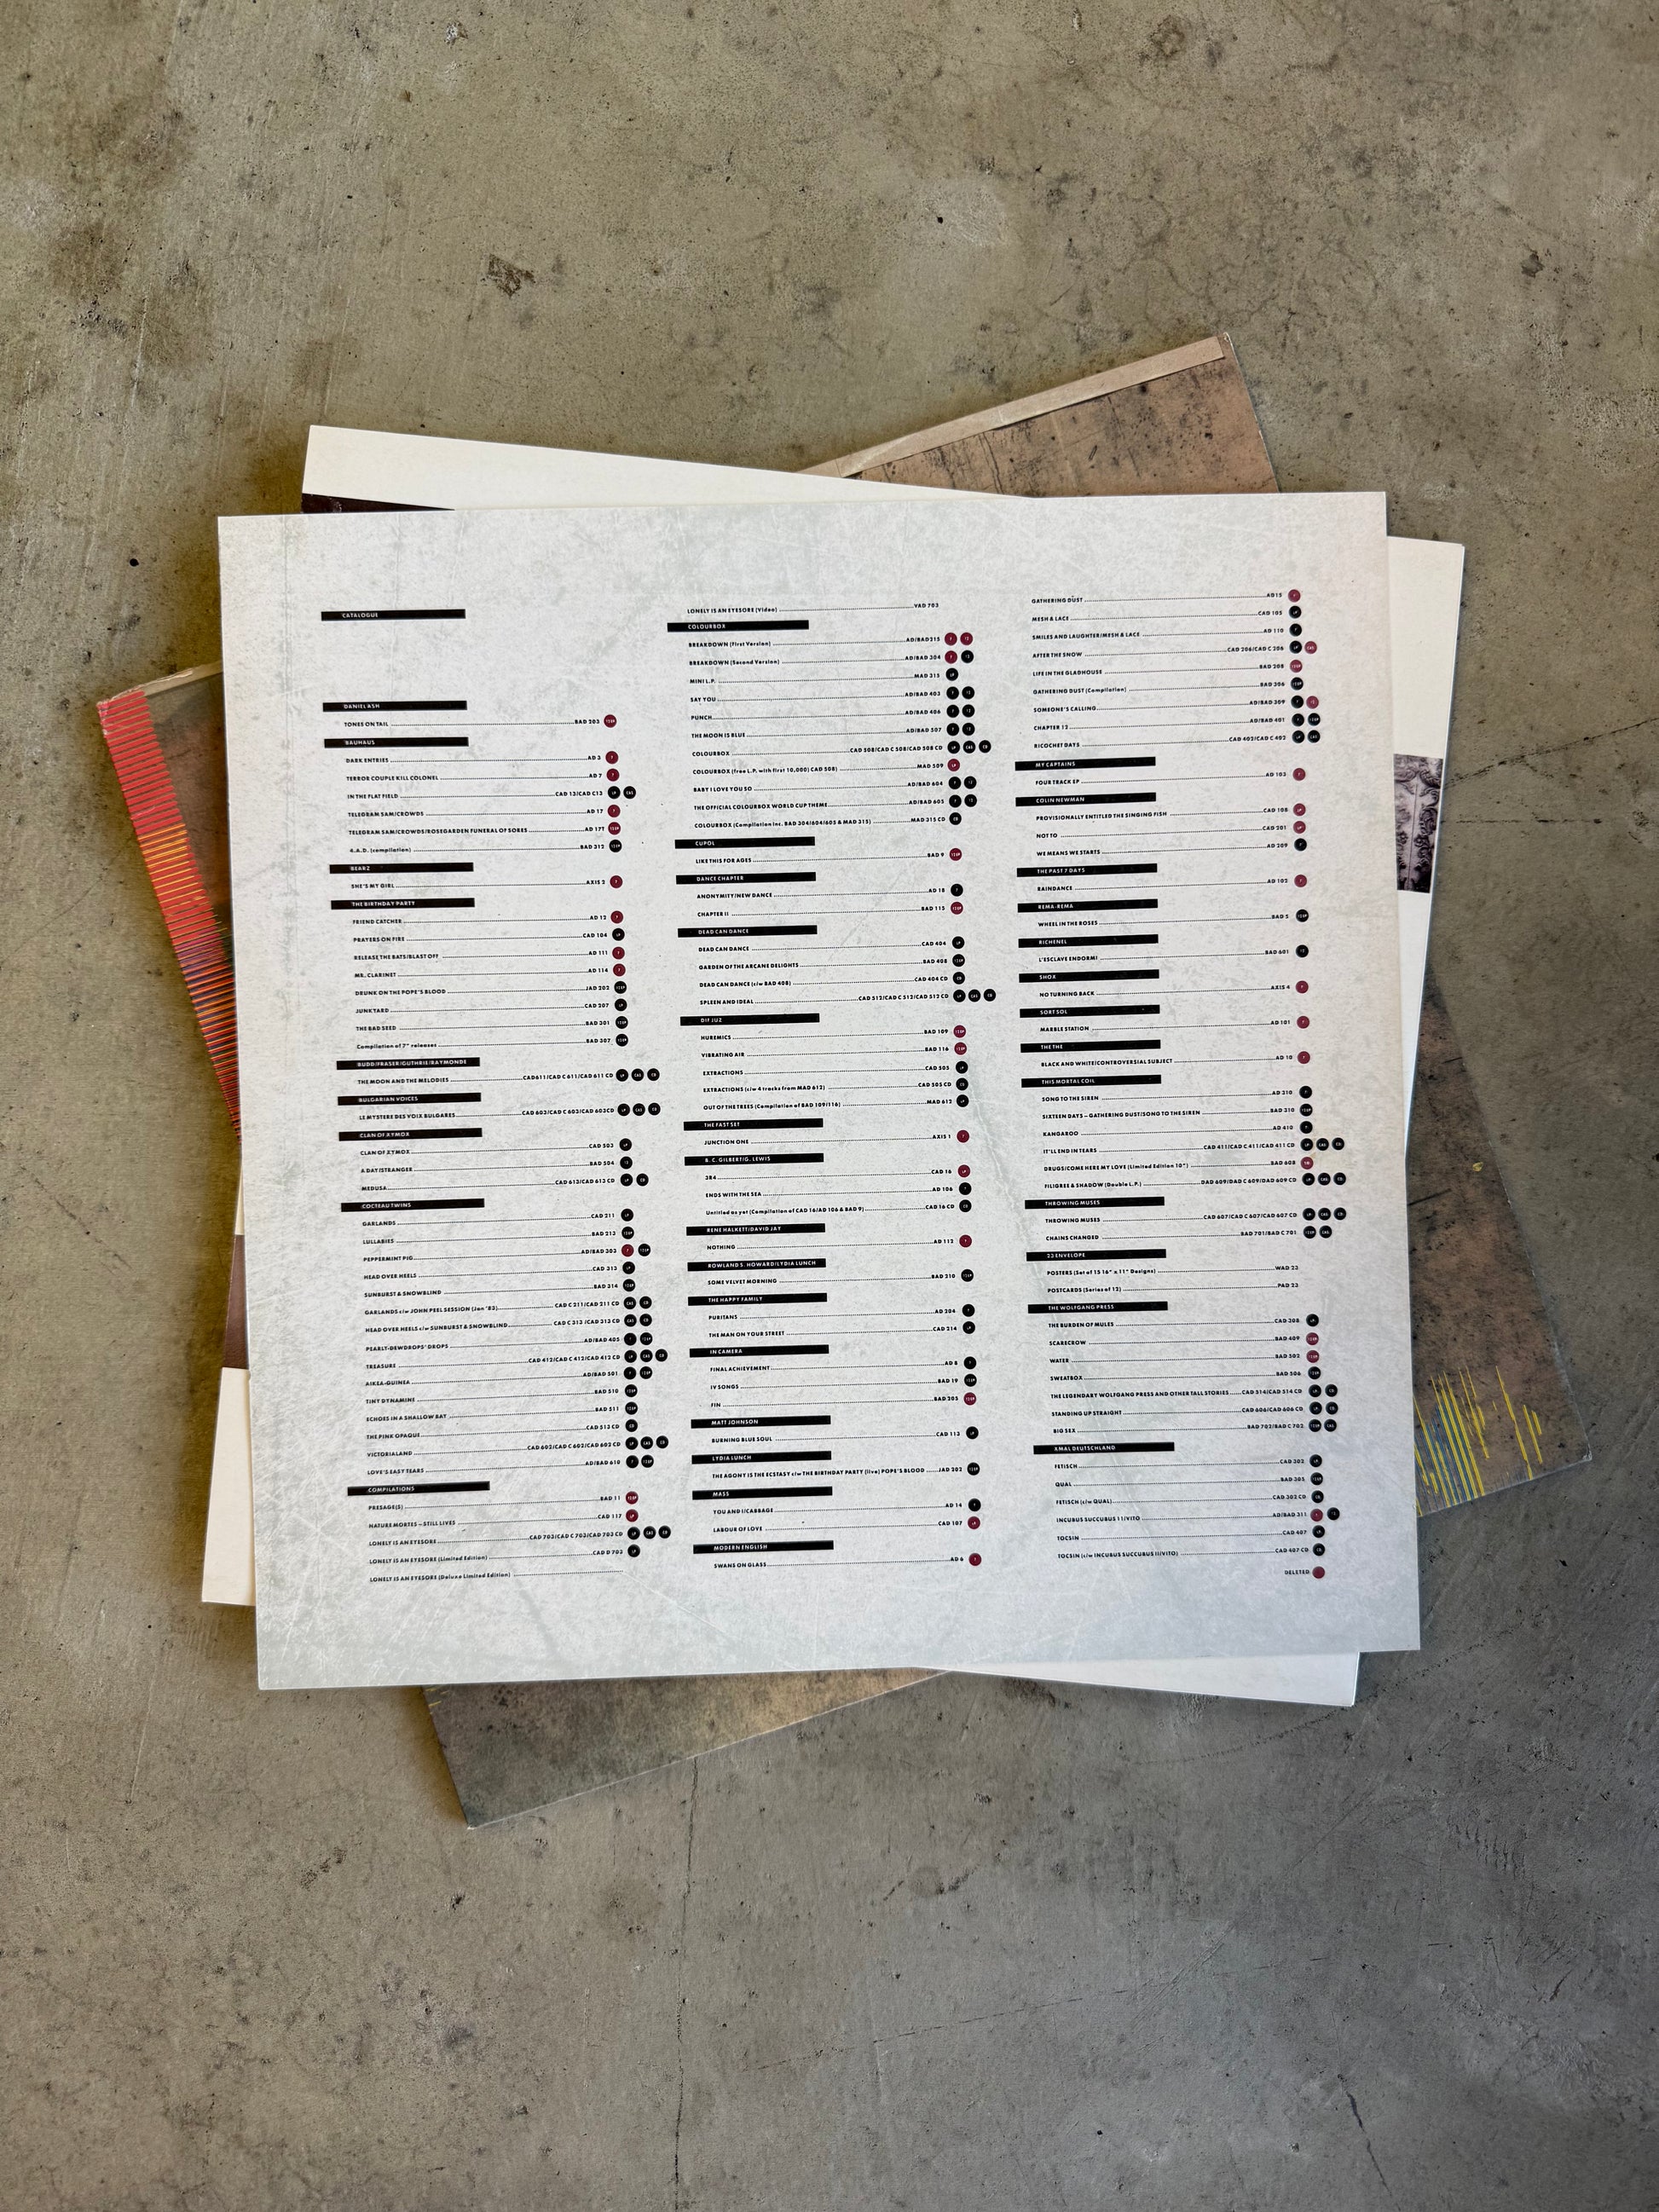 CATALOGUE
DANIEL ASH
TONES ON TAIL BAD 203 12EP
BAUHAUS
DARK ENTRIES AD 3 7
TERROR COUPLE KILL COLONEL AD 7 7
IN THE FLAT FIELD CAD 13/CAD C13 LP CAS
TELEGRAM SAM/CROWDS AD 17 7
TELEGRAM SAM/CROWDS/ROSEGARDEN FUNERAL OF SORES AD 17T 12EP
4.A.D. (compilation) BAD 312 12EP
BEARZ
SHE'S MY GIRL AXIS 2 7
THE BIRTHDAY PARTY
FRIEND CATCHER AD 12 7
PRAYERS ON FIRE CAD 104 LP
RELEASE THE BATS/BLAST OFF AD 111 7
MR. CLARINET AD 114 7
DRUNK ON THE POPE'S BLOOD JAD 202 12EP
JUNKYARD CAD 207 LP
THE BAD SEED BAD 301 12EP
Compilation of 7" releases BAD 307 12EP
BUDD/FRASER/GUTHRIE/RAYMONDE
THE MOON AND THE MELODIES CAD611/CAD C 611/CAD 611 CD LP CAS CD
BULGARIAN VOICES
LE MYSTERE DES VOIX BULGARES CAD 603/CAD C 603/CAD 603CD LP CAS CD
CLAN OF XYMOX
CLAN OF XYMOX CAD 503 LP
A DAY/STRANGER BAD 504 12
MEDUSA CAD 613/CAD 613 CD LP CD
COCTEAU TWINS
GARLANDS CAD 211 LP
LULLABIES BAD 213 12EP
PEPPERMINT PIG AD/BAD 303 7 12EP
HEAD OVER HEELS CAD 313 LP
SUNBURST & SNOWBLIND BAD 314 12EP
GARLANDS c/w JOHN PEEL SESSION (Jan '83) CAD C 211/CAD 211 CD CAS CD
HEAD OVER HEELS c/w SUNBURST & SNOWBLIND CAD C 313 /CAD 313 CD CAS CD
PEARLY-DEWDROPS' DROPS AD/BAD 405 7 12EP
TREASURE CAD 412/CAD C 412/CAD 412 CD LP CAS CD
AIKEA-GUINEA AD/BAD 501 7 12EP
TINY DYNAMINE BAD 510 12EP
ECHOES IN A SHALLOW BAY BAD 511 12EP
THE PINK OPAQUE CAD 513 CD CD
VICTORIALAND CAD 602/CAD C 602/CAD 602 CD LP CAS CD
LOVE'S EASY TEARS AD/BAD 610 7 12EP
COMPILATIONS
PRESAGE(S) BAD 11 12EP
NATURE MORTES – STILL LIVES CAD 117 LP
LONELY IS AN EYESORE CAD 703/CAD C 703/CAD 703 CD LP CAS CD
LONELY IS AN EYESORE (Limited Edition) CAD D 703 LP
LONELY IS AN EYESORE (Deluxe Limited Edition)
LONELY IS AN EYESORE (Video) VAD 703
COLOURBOX
BREAKDOWN (First Version) AD/BAD215 7 12
BREAKDOWN (Second Version) AD/BAD 304 7 12
MINI L.P. MAD 315 LP
SAY YOU AD/BAD 403 7 12
PUNCH AD/BAD 406 7 12
THE MOON IS BLUE AD/BAD 507 7 12
COLOURBOX CAD 508/CAD C 508/CAD 508 CD LP CAS CD
COLOURBOX (free L.P. with first 10,000) CAD 508) MAD 509 LP
BABY I LOVE YOU SO AD/BAD 604 7 12
THE OFFICIAL COLOURBOX WORLD CUP THEME AD/BAD 605 7 12
COLOURBOX (Compilation inc. BAD 304/604/605 & MAD 315) MAD 315 CD CD
CUPOL
LIKE THIS FOR AGES BAD 9 12EP
DANCE CHAPTER
ANONYMITY/NEW DANCE AD 18 7
CHAPTER II BAD 115 12EP
DEAD CAN DANCE
DEAD CAN DANCE CAD 404 LP
GARDEN OF THE ARCANE DELIGHTS BAD 408 12EP
DEAD CAN DANCE (c/w BAD 408) CAD 404 CD CD
SPLEEN AND IDEAL CAD 512/CAD C 512/CAD 512 CD LP CAS CD
DIF JUZ
HUREMICS BAD 109 12EP
VIBRATING AIR BAD 116 12EP
EXTRACTIONS CAD 505 LP
EXTRACTIONS (c/w 4 tracks from MAD 612) CAD 505 CD CD
OUT OF THE TREES (Compilation of BAD 109/116) MAD 612 LP
THE FAST SET
JUNCTION ONE AXIS 1 7
B. C. GILBERT/G. LEWIS
3R4 CAD 16 LP
ENDS WITH THE SEA AD 106 7
Untitled as yet (Compilation of CAD 16/AD 106 & BAD 9) CAD 16 CD CD
RENE HALKETT/DAVID JAY
NOTHING AD 112 7
ROWLAND S. HOWARD/LYDIA LUNCH
SOME VELVET MORNING BAD 210 12EP
THE HAPPY FAMILY
PURITANS AD 204 7
THE MAN ON YOUR STREET CAD 214 LP
IN CAMERA
FINAL ACHIEVEMENT AD 8 7
IV SONGS BAD 19 12EP
FIN BAD 205 12EP
MATT JOHNSON
BURNING BLUE SOUL CAD 113 LP
LYDIA LUNCH
THE AGONY IS THE ECSTASY c/w THE BIRTHDAY PARTY (live) POPE'S BLOOD JAD 202 12EP
MASS
YOU AND I/CABBAGE AD 14 7
LABOUR OF LOVE CAD 107 LP
MODERN ENGLISH
SWANS ON GLASS AD 6 7
GATHERING DUST AD15 7
MESH & LACE CAD 105 LP
SMILES AND LAUGHTER/MESH & LACE AD 110 7
AFTER THE SNOW CAD 206/CAD C 206 LP CAS
LIFE IN THE GLADHOUSE BAD 208 12EP
GATHERING DUST (Compilation) BAD 306 12EP
SOMEONE'S CALLING AD/BAD 309 7 12
CHAPTER 12 AD/BAD 401 7 12EP
RICOCHET DAYS CAD 402/CAD C 402 LP CAS
MY CAPTAINS
FOUR TRACK EP AD 103 7
COLIN NEWMAN
PROVISIONALLY ENTITLED THE SINGING FISH CAD 108 LP
NOT TO CAD 201 LP
WE MEANS WE STARTS AD 209 7
THE PAST 7 DAYS
RAINDANCE AD 102 7
REMA-REMA
WHEEL IN THE ROSES BAD 5 12EP
RICHENEL
L'ESCLAVE ENDORMI BAD 601 12
SHOX
NO TURNING BACK AXIS 4 7
SORT SOL
MARBLE STATION AD 101 7
THE THE
BLACK AND WHITE/CONTROVERSIAL SUBJECT AD 10 7
THIS MORTAL COIL
SONG TO THE SIREN AD 310 7
SIXTEEN DAYS – GATHERING DUST/SONG TO THE SIREN BAD 310 12EP
KANGAROO AD 410 7
IT'LL END IN TEARS CAD 411/CAD C 411/CAD 411 CD LP CAS CD
DRUGS/COME HERE MY LOVE (Limited Edition 10") BAD 608 10
FILIGREE & SHADOW (Double L.P.) DAD 609/DAD C 609/DAD 609 CD LP CAS CD
THROWING MUSES
THROWING MUSES CAD 607/CAD C 607/CAD 607 CD LP CAS CD
CHAINS CHANGED BAD 701/BAD C 701 12EP CAS
23 ENVELOPE
POSTERS (Set of 15 16" x 11" Designs) WAD 23
POSTCARDS (Series of 12) PAD 23
THE WOLFGANG PRESS
THE BURDEN OF MULES CAD 308 LP
SCARECROW BAD 409 12EP
WATER BAD 502 12EP
SWEATBOX BAD 506 12EP
THE LEGENDARY WOLFGANG PRESS AND OTHER TALL STORIES CAD 514/CAD 514 CD LP CD
STANDING UP STRAIGHT CAD 606/CAD 606 CD LP CD
BIG SEX BAD 702/BAD C 702 12EP CAS
XMAL DEUTSCHLAND
FETISCH CAD 302 LP
QUAL BAD 305 12EP
FETISCH (c/w QUAL) CAD 302 CD CD
INCUBUS SUCCUBUS 11/VITO AD/BAD 311 7 12
TOCSIN CAD 407 LP
TOCSIN (c/w INCUBUS SUCCUBUS II/VITO) CAD 407 CD CD
DELETED